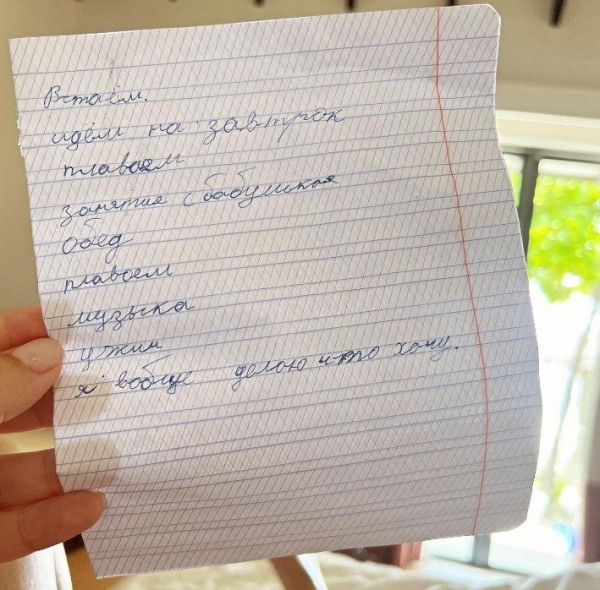 Встаём.
идём на завтрок
плаваем
занятие с бабушкая
обед
плаваем
музыка
ужин
я вобще делаю что хочу.